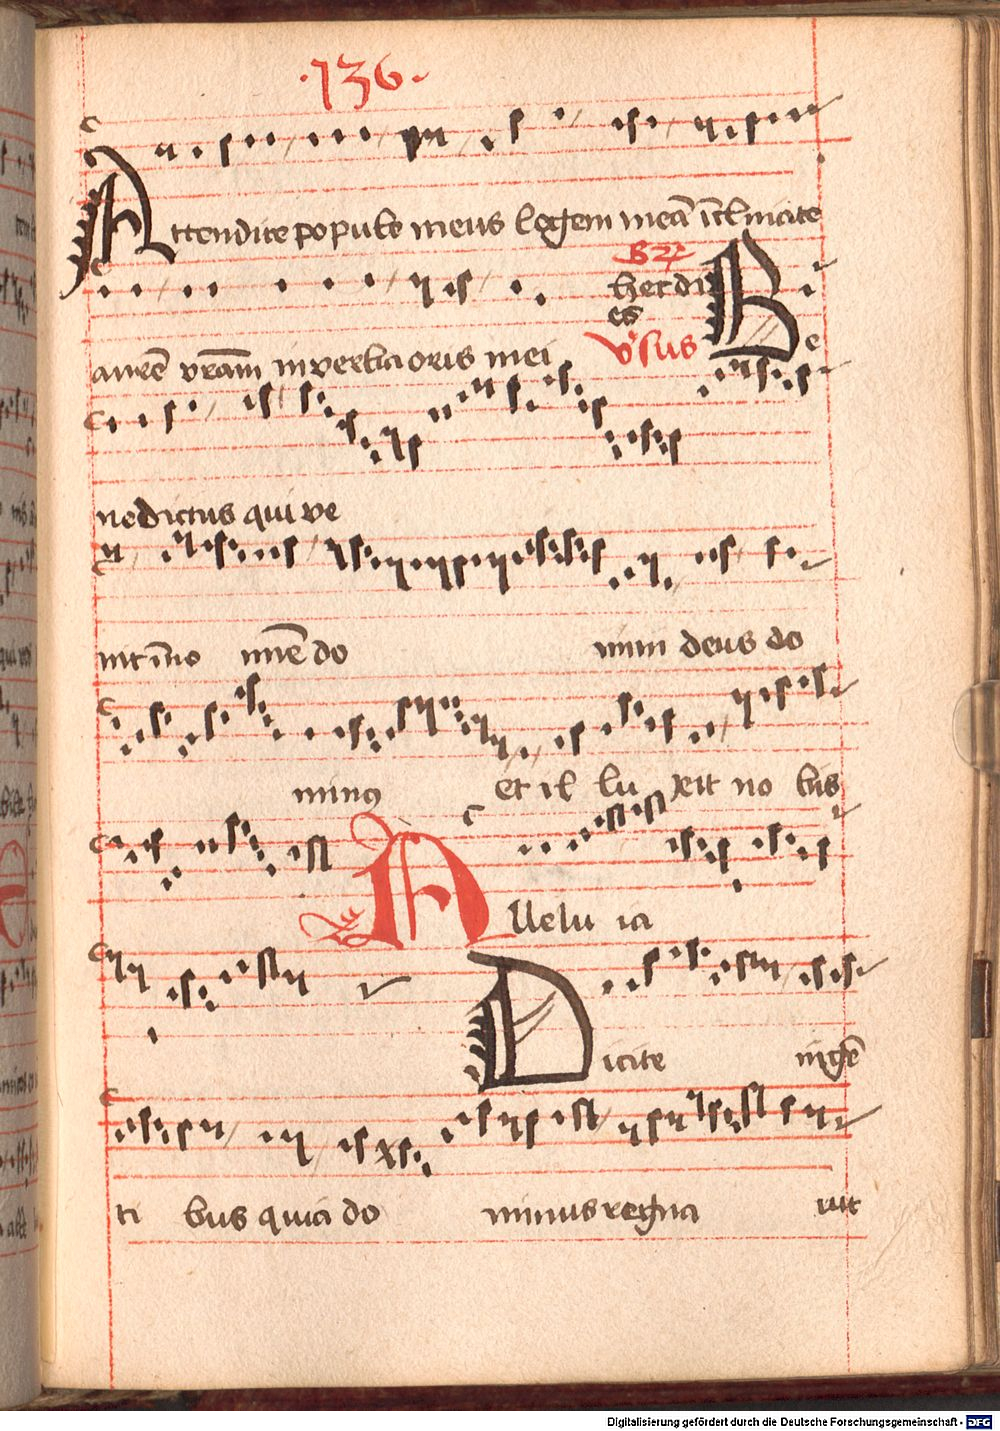 ·136·
Attendite popule meus legem meā īclinate
herdi
es
aurē vr̄am in verba oris mei v̓sus Be
nedictus qui ve
nit ī no mīe do
mini deus do
minꝰ et il lu xit no bis
Allelu ia
Dicite in gē
ti bus quia do minus regna uit
Digitalisierung gefördert durch die Deutsche Forschungsgemeinschaft - DFG